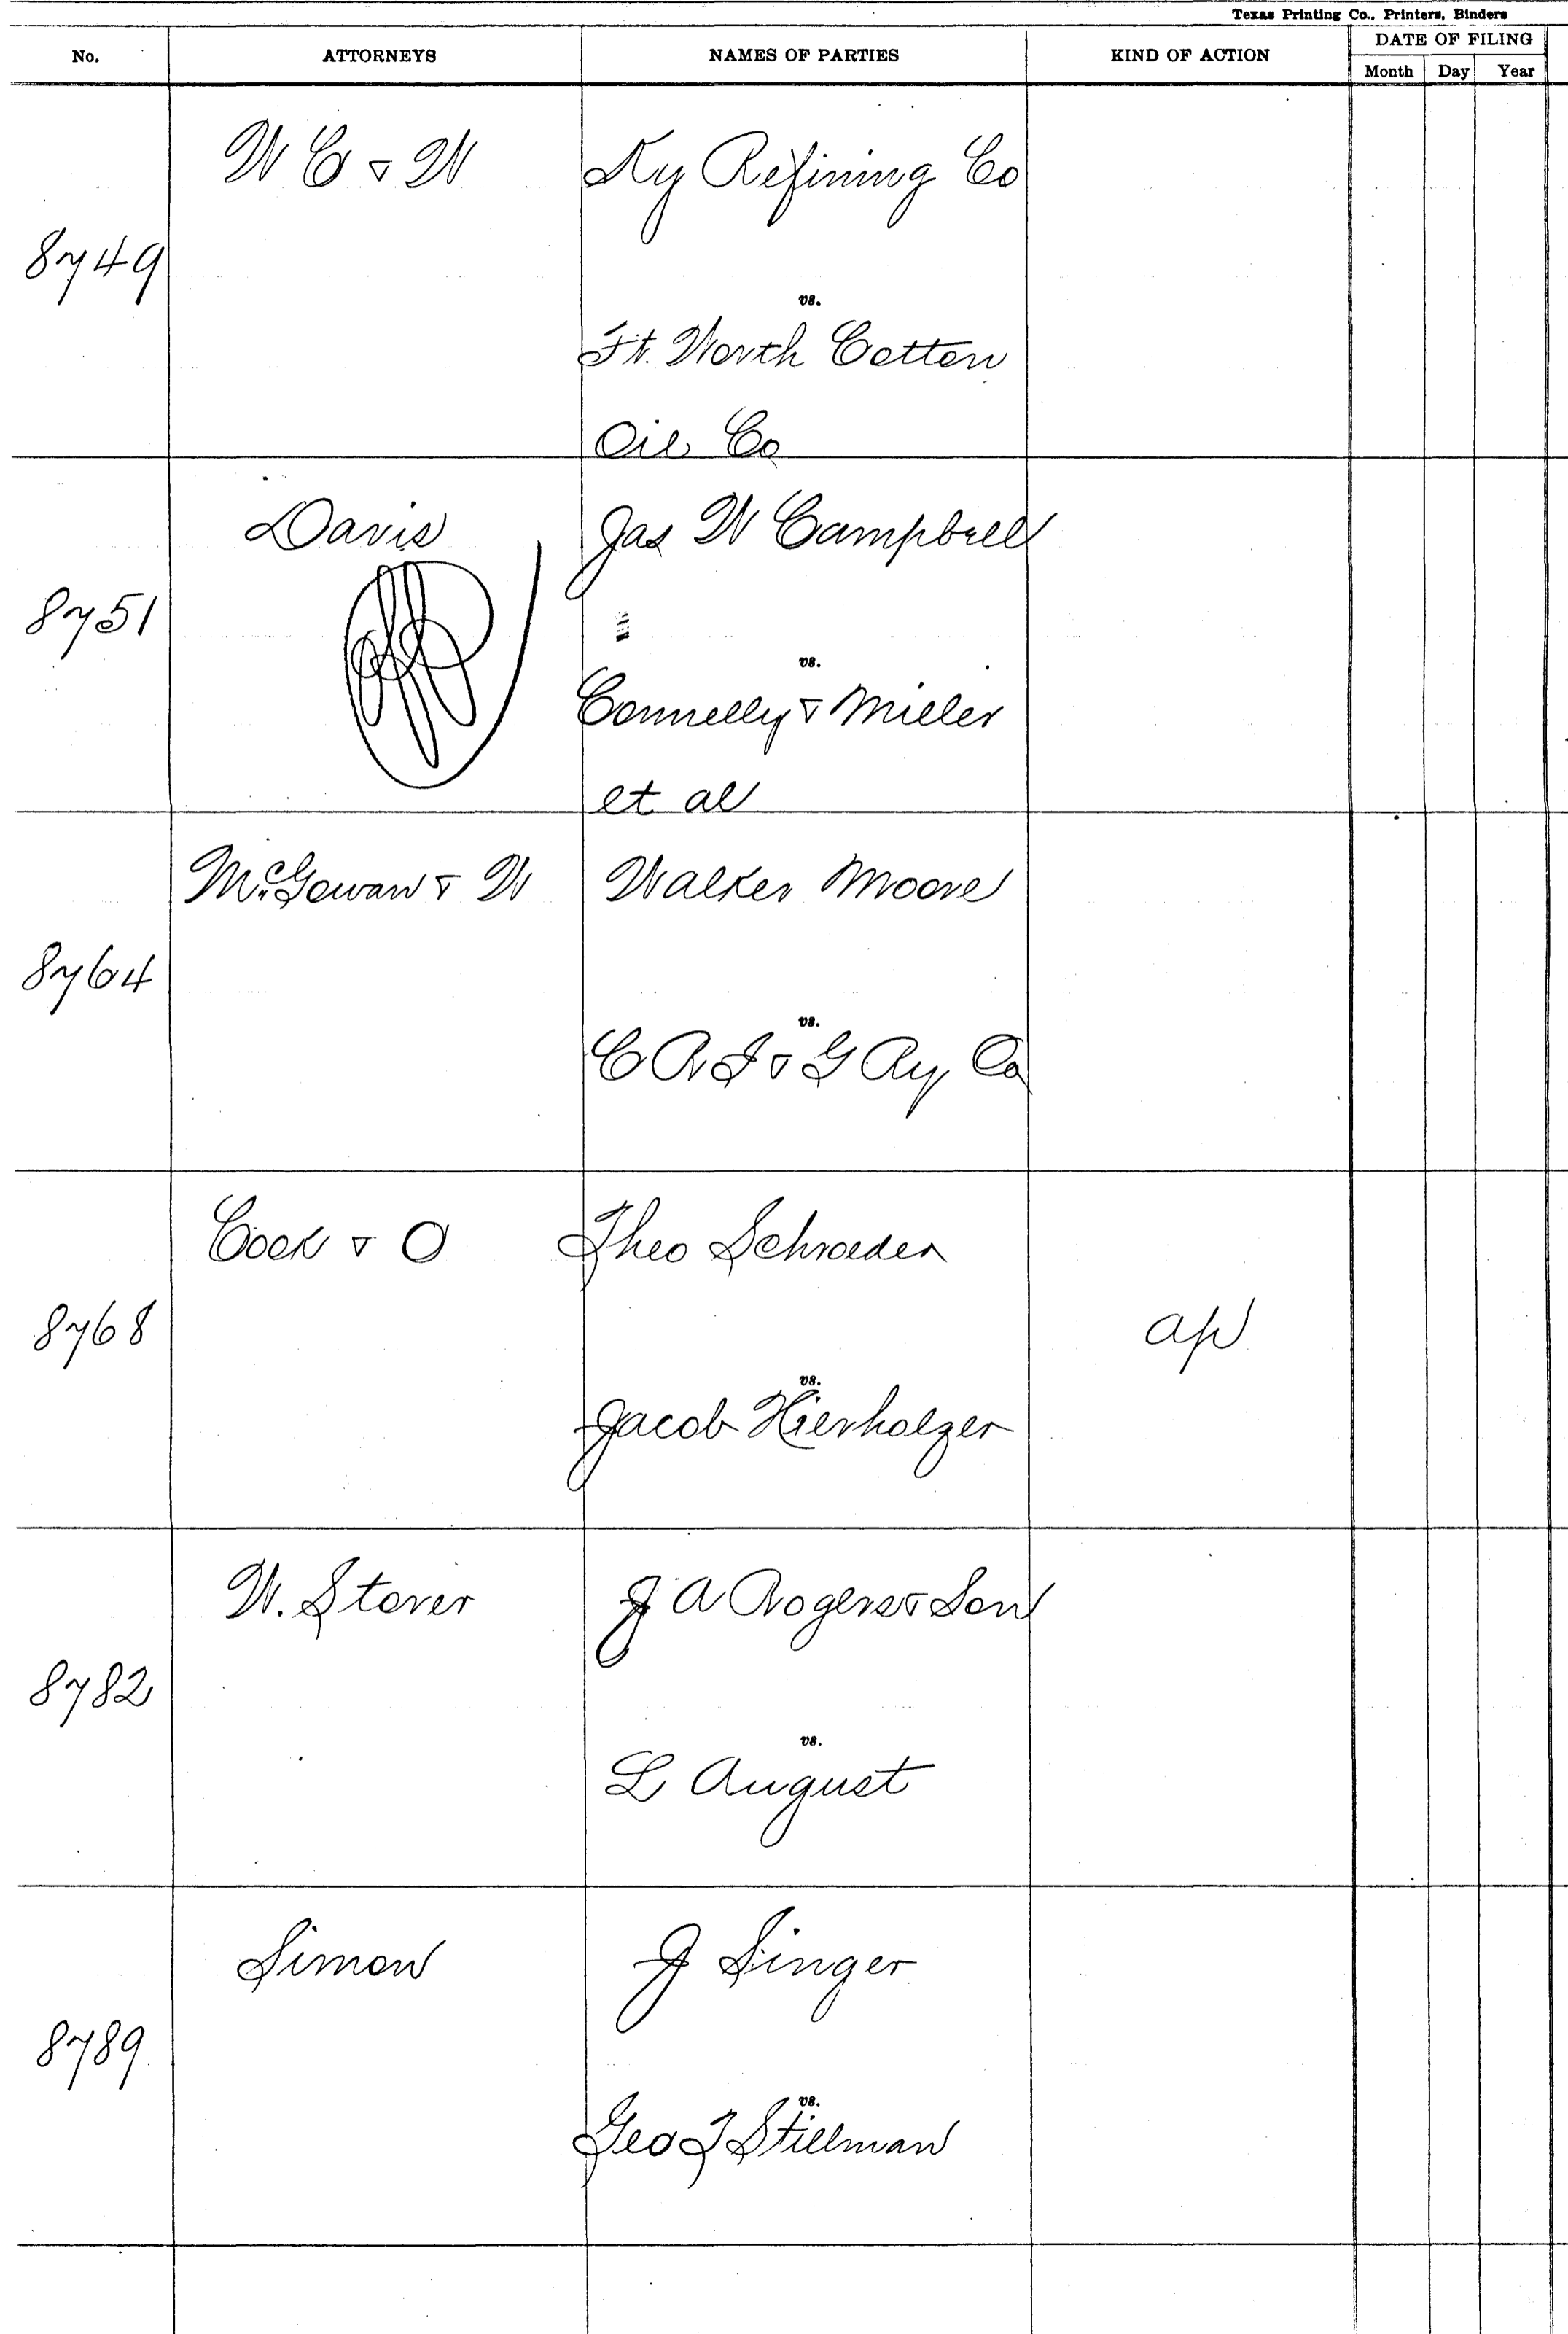 Texas Printing Co., Printers, Binders
No. ATTORNEYS NAMES OF PARTIES KIND OF ACTION DATE OF FILING
Month Day Year
W C & W Ky Refining Co
8749
vs.
Ft. Worth Cotton
Oil Co
Davis Jas W Campbell
8751
vs.
Connelly & Miller
et al
McGowan & W Walker Moore
8764
vs.
C R I & G Ry Co
Cock & O Theo Schroeder
8768 ap
vs.
Jacob Hierholzer
W. Stover J A Rogers & Son
8782
vs.
L August
Simon J Singer
8789
vs.
Geo T Stillman